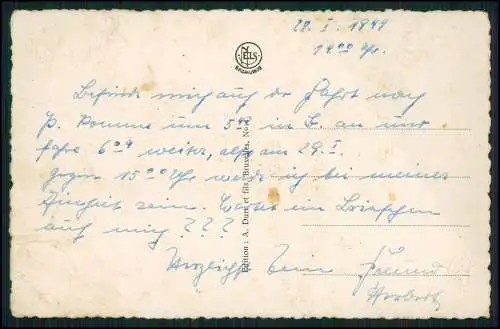 28. I. 1941
19⁰⁰ Uhr.
NELS
Befinde mich auf der Fahrt nach
P. Komme um 5⁴² in B. an und
fahre 6⁰⁹ weiter, also am 29. I.
gegen 15⁰⁰ Uhr werde ich bei meiner
Einheit sein. Wartet ein Briefchen
auf mich ? ? ?
Herzlichst Dein Freund
Herbert
Edition : A. Dumt et fils, Bruxelles, No